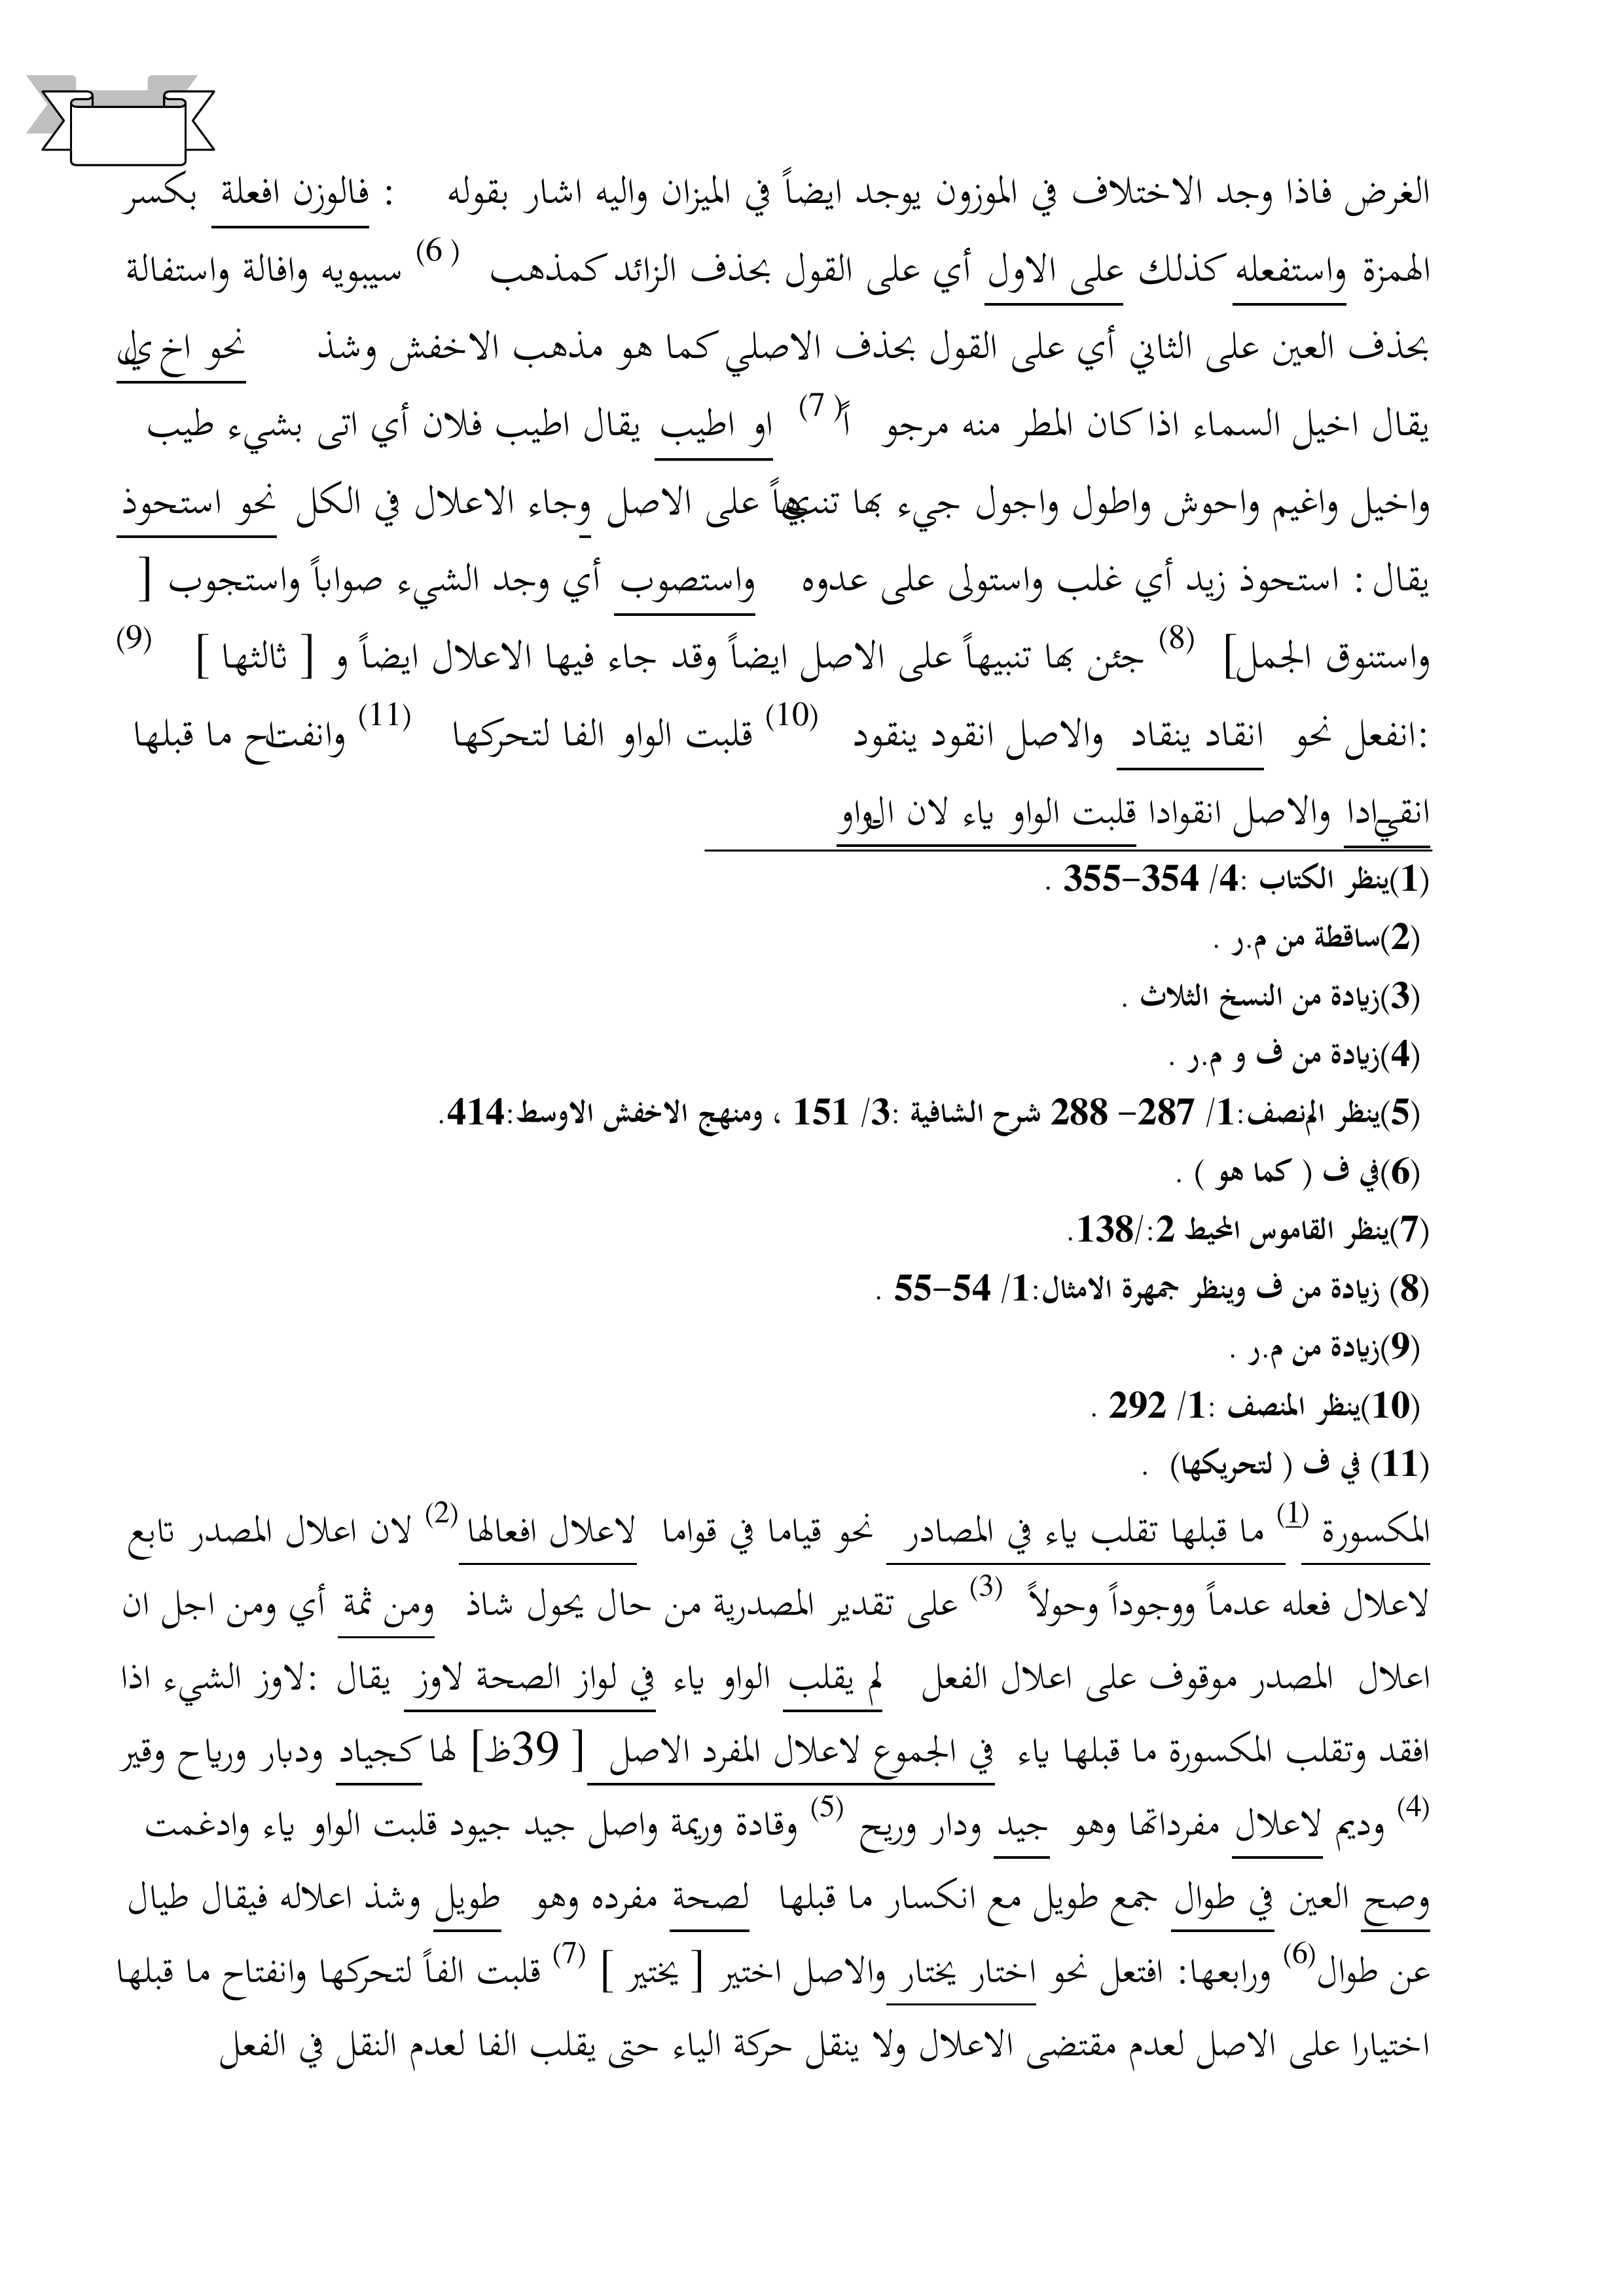 الغرض فاذا وجد الاختلاف في الموزون يوجد ايضاً في الميزان واليه اشار بقوله : فالوزن افعلة بكسر
الهمزة واستفعله كذلك على الاول أي على القول بحذف الزائد كمذهب (6) سيبويه وافالة واستفالة
بحذف العين على الثاني أي على القول بحذف الاصلي كما هو مذهب الاخفش وشذ نحو اخيل
يقال اخيل السماء اذا كان المطر منه مرجواً (7) او اطيب يقال اطيب فلان أي اتى بشيء طيب
واخيل واغيم واحوش واطول واجول جيء بها تنبيهاً على الاصل وجاء الاعلال في الكل نحو استحوذ
يقال : استحوذ زيد أي غلب واستولى على عدوه واستصوب أي وجد الشيء صواباً واستجوب [
واستنوق الجمل] (8) جئن بها تنبيهاً على الاصل ايضاً وقد جاء فيها الاعلال ايضاً و [ ثالثها ] (9)
:انفعل نحو انقاد ينقاد والاصل انقود ينقود (10) قلبت الواو الفا لتحركها (11) وانفتاح ما قبلها
انقيادا والاصل انقوادا قلبت الواو ياء لان الواو
(1)ينظر الكتاب :4/ 354-355 .
(2)ساقطة من م.ر .
(3)زيادة من النسخ الثلاث .
(4)زيادة من ف و م.ر .
(5)ينظر المنصف:1/ 287- 288 شرح الشافية :3/ 151 ، ومنهج الاخفش الاوسط:414.
(6)في ف ( كما هو ) .
(7)ينظر القاموس المحيط 2:/138.
(8) زيادة من ف وينظر جمهرة الامثال:1/ 54-55 .
(9)زيادة من م.ر .
(10)ينظر المنصف :1/ 292 .
(11) في ف ( لتحريكها) .
المكسورة (1) ما قبلها تقلب ياء في المصادر نحو قياما في قواما لاعلال افعالها (2) لان اعلال المصدر تابع
لاعلال فعله عدماً ووجوداً وحولاً (3) على تقدير المصدرية من حال يحول شاذ ومن ثمة أي ومن اجل ان
اعلال المصدر موقوف على اعلال الفعل لم يقلب الواو ياء في لواز الصحة لاوز يقال :لاوز الشيء اذا
افقد وتقلب المكسورة ما قبلها ياء في الجموع لاعلال المفرد الاصل [ 39ظ] لها كجياد ودبار ورياح وقير
(4) وديم لاعلال مفرداتها وهو جيد ودار وريح (5) وقادة وريمة واصل جيد جيود قلبت الواو ياء وادغمت
وصح العين في طوال جمع طويل مع انكسار ما قبلها لصحة مفرده وهو طويل وشذ اعلاله فيقال طيال
عن طوال(6) ورابعها: افتعل نحو اختار يختار والاصل اختير [ يختير ] (7) قلبت الفاً لتحركها وانفتاح ما قبلها
اختيارا على الاصل لعدم مقتضى الاعلال ولا ينقل حركة الياء حتى يقلب الفا لعدم النقل في الفعل